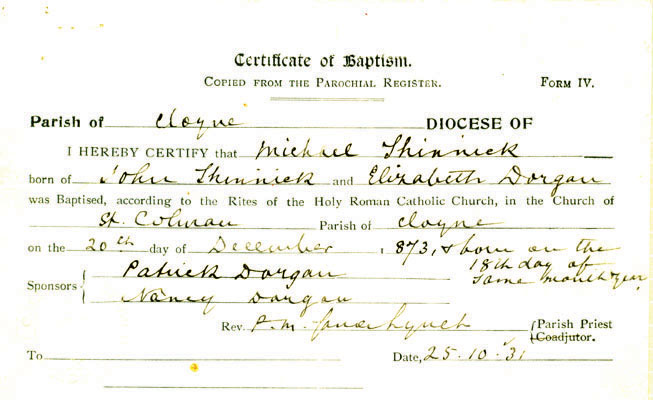 Certificate of Baptism.
COPIED FROM THE PAROCHIAL REGISTER. FORM IV.
Parish of Cloyne DIOCESE OF
I HEREBY CERTIFY that Michael Shinnick
born of John Shinnick and Elizabeth Dorgan
was Baptised, according to the Rites of the Holy Roman Catholic Church, in the Church of
St. Colman Parish of Cloyne
on the 20th day of December, 1873, & born on the
18th day of
same month & year
Sponsors { Patrick Dorgan
Nancy Dorgan
Rev. P. M. Lynch { Parish Priest
Coadjutor.
To Date, 25.10.31